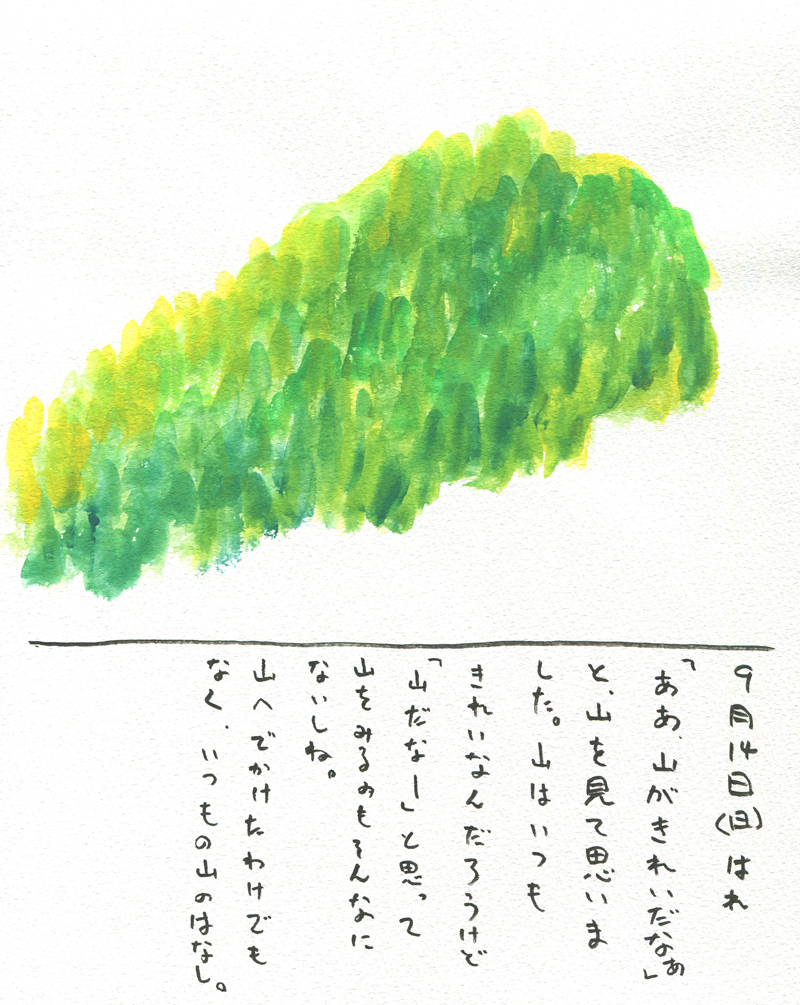 9月14日(日)はれ
「ああ、山がきれいだなぁ」
と、山を見て思いま
した。山はいつも
きれいなんだろうけど
「山だなー」と思って
山をみるのもそんなに
ないしね。
山へでかけたわけでも
なく、いつもの山のはなし。